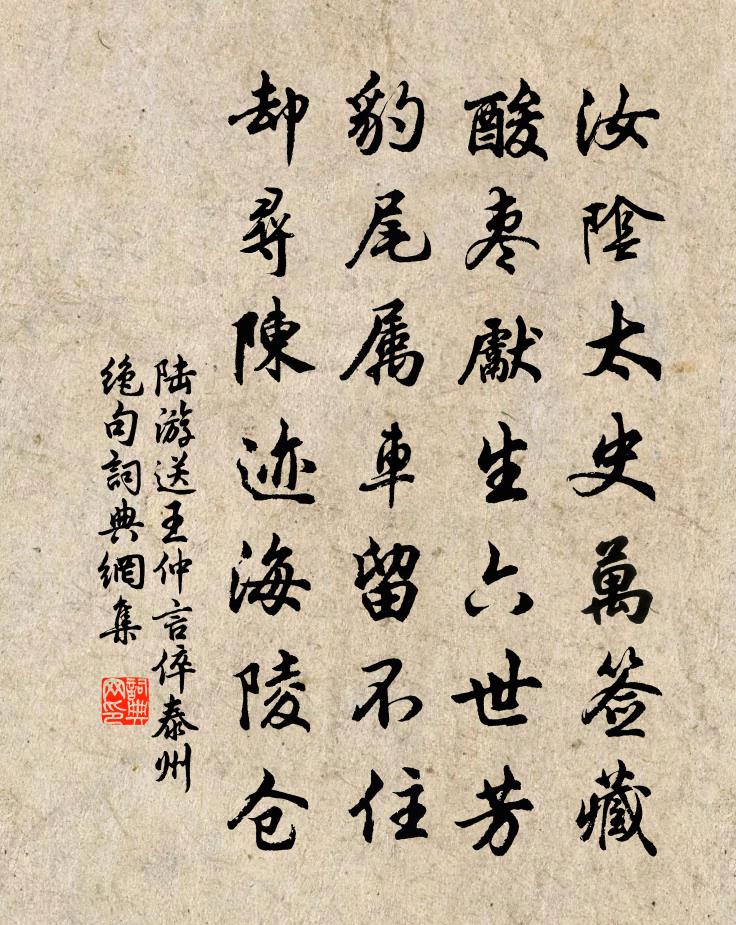 汝陰太史萬签藏
酸枣獻生六世芳
豹尾属車留不住
却尋陳迹海陵仓
陆游送王仲言倅泰州
绝句詞典網集
詞典网印